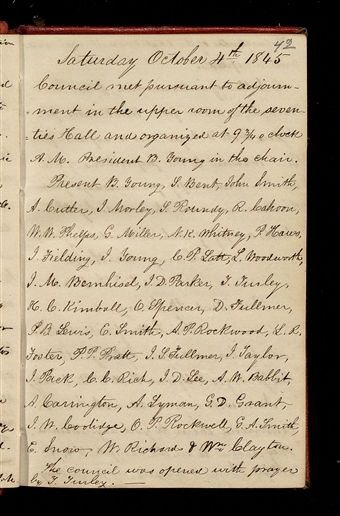 42
Saturday October 4th 1845
Council met pursuant to adjourn-
-ment in the upper room of the seven-
-ties Hall and organized at 9 3/4 o clock
A. M. President B. Young in the chair.
Present B. Young, S. Bent, John Smith,
A. Cutler, I. Morley, S. Roundy, R. Cahoon,
W. W. Phelps, G. Miller, N. K. Whitney, P. Haws,
J. Fielding, J. Young, C. P. Lott, L. Woodworth,
J. M. Bernhisel, J. D. Parker, T. Turley,
H. C. Kimball, O. Spencer, D. Fullmer,
P. B. Lewis, E. Smith, A. P. Rockwood, L. R.
Foster, P. P. Pratt, J. S. Fullmer, J. Taylor,
J. Pack, C. C. Rich, J. D. Lee, A. W. Babbit,
A. Carrington, A. Lyman, G. D. Grant,
J. W. Coolidge, O. P. Rockwell, G. A. Smith,
E. Snow, W. Richards & Wm Clayton.
The council was opened with prayer
by T. Turley. —